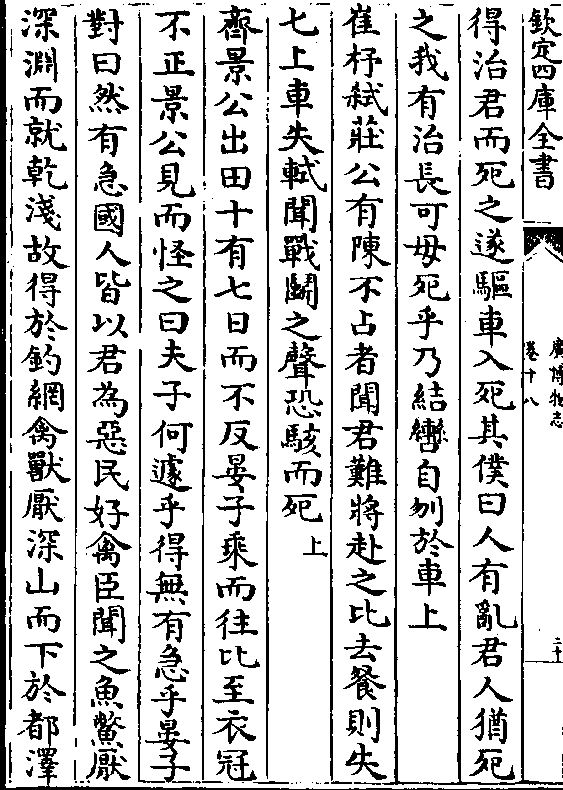 欽定四庫全書
廣博物志
卷十八
二十
得治君而死之遂驅車入死其僕曰人有亂君人猶死
之我有治長可毋死乎乃結轡自刎於車上
崔杼弑莊公有陳不占者聞君難將赴之比去餐則失
七上車失軾聞戰鬭之聲恐駭而死上
齊景公出田十有七日而不反晏子乘而往比至衣冠
不正景公見而怪之曰夫子何遽乎得無有急乎晏子
對曰然有急國人皆以君為惡民好禽臣聞之魚鱉厭
深淵而就乾淺故得於釣網禽獸厭深山而下於都澤